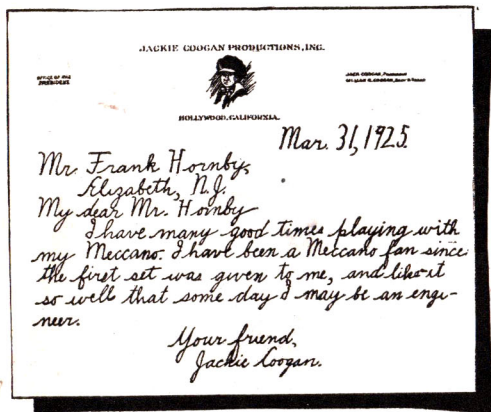 JACKIE COOGAN PRODUCTIONS, INC.
OFFICE OF THE
PRESIDENT
JACK COOGAN, PRESIDENT
HOLLYWOOD, CALIFORNIA.
Mar. 31, 1925.
Mr. Frank Hornby,
Elizabeth, N.J.
My dear Mr. Hornby
I have many good times playing with
my Meccano. I have been a Meccano fan since
the first set was given to me, and like it
so well that some day I may be an engi-
neer.
Your friend,
Jackie Coogan.